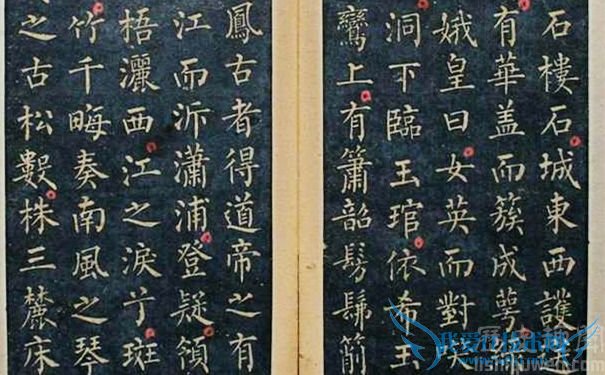 石樓石城東西護
有華盖而簇成蕚
娥皇曰女英而對
洞下臨玉琯依希玉
鸞上有簫韶髣髴箾
鳳古者得道帝之有
江而泝瀟浦登疑領
梧灑西江之淚于斑
竹千畮奏南風之琴
之古松數株三麓床